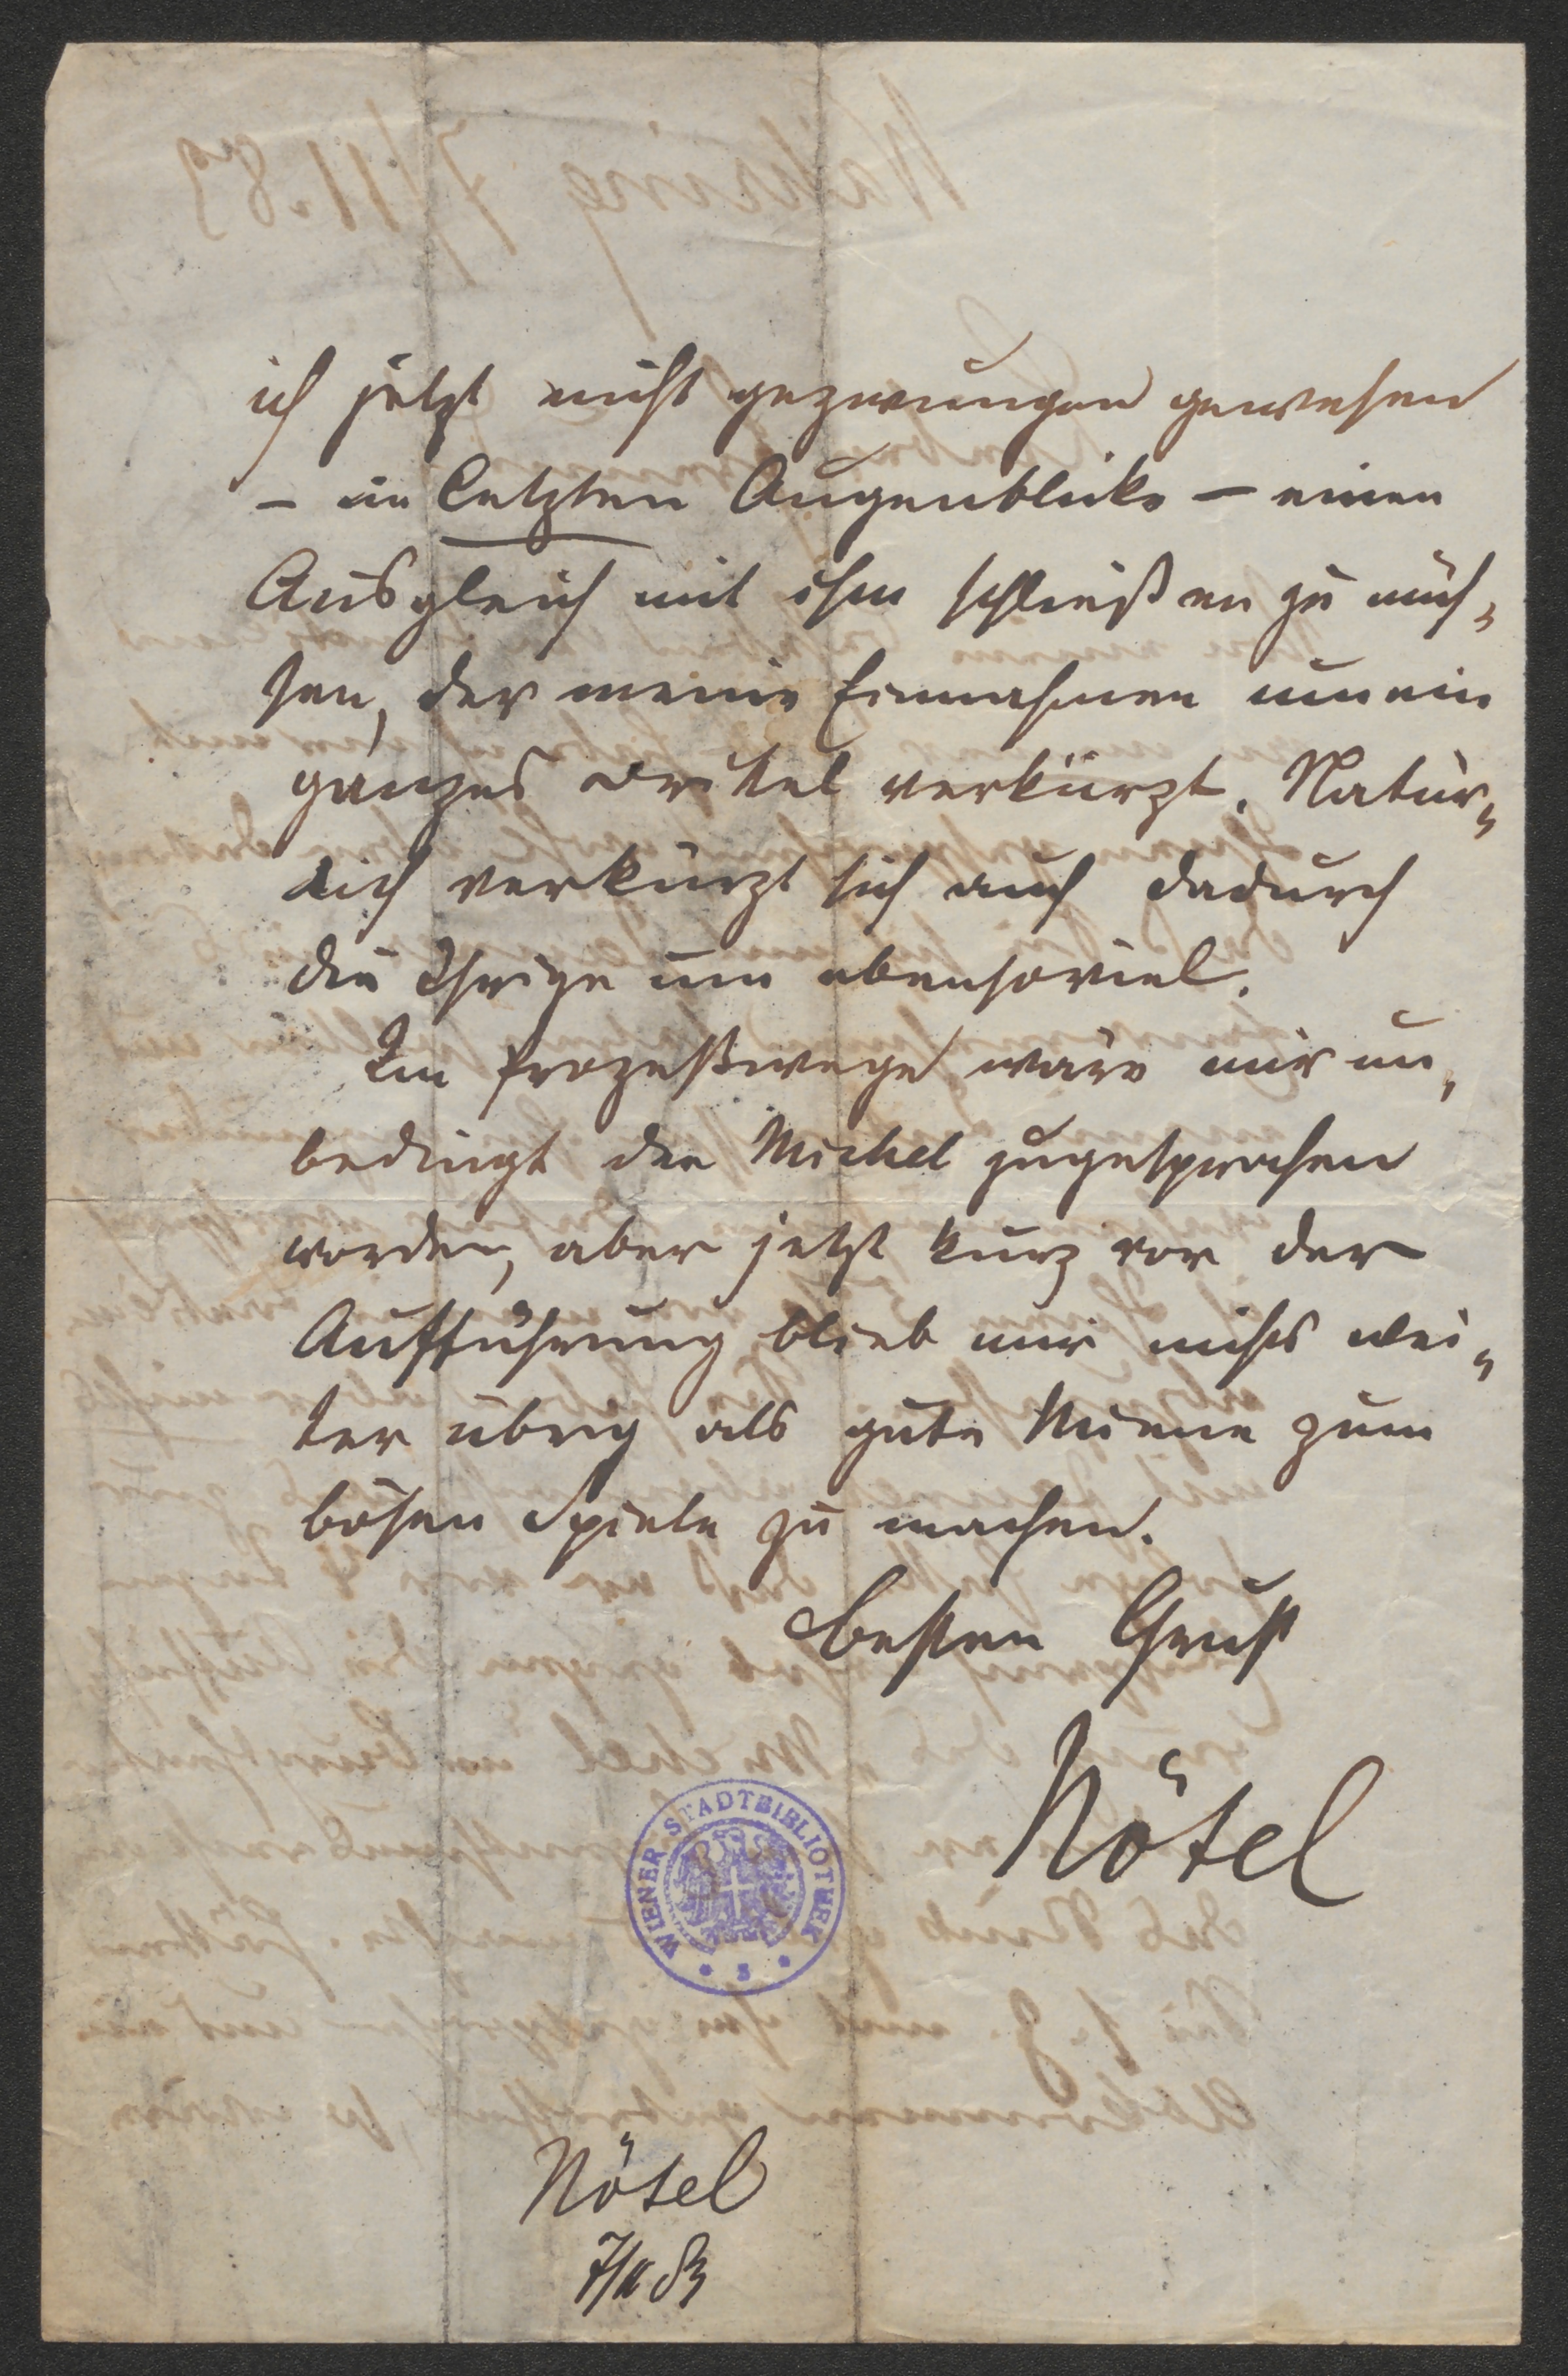 ich jetzt nicht gezwungen gewesen
– im letzten Augenblicke – einen
Ausgleich mit ihm schließen zu müs„
sen, der meine Einnahmen um ein
ganzes Drittel verkürzt. Natür„
lich verkürzt sich auch dadurch
die Ihrige um ebensoviel.
Im Prozeßwege wäre mir un„
bedingt der Michel zugesprochen
worden, aber jetzt kurz vor der
Aufführung blieb mir nichts wei„
ter übrig als gute Miene zum
bösen Spiele zu machen.
Besten Gruß
Nötel
WIENER STADTBIBLIOTHEK
Nötel
7/11 83